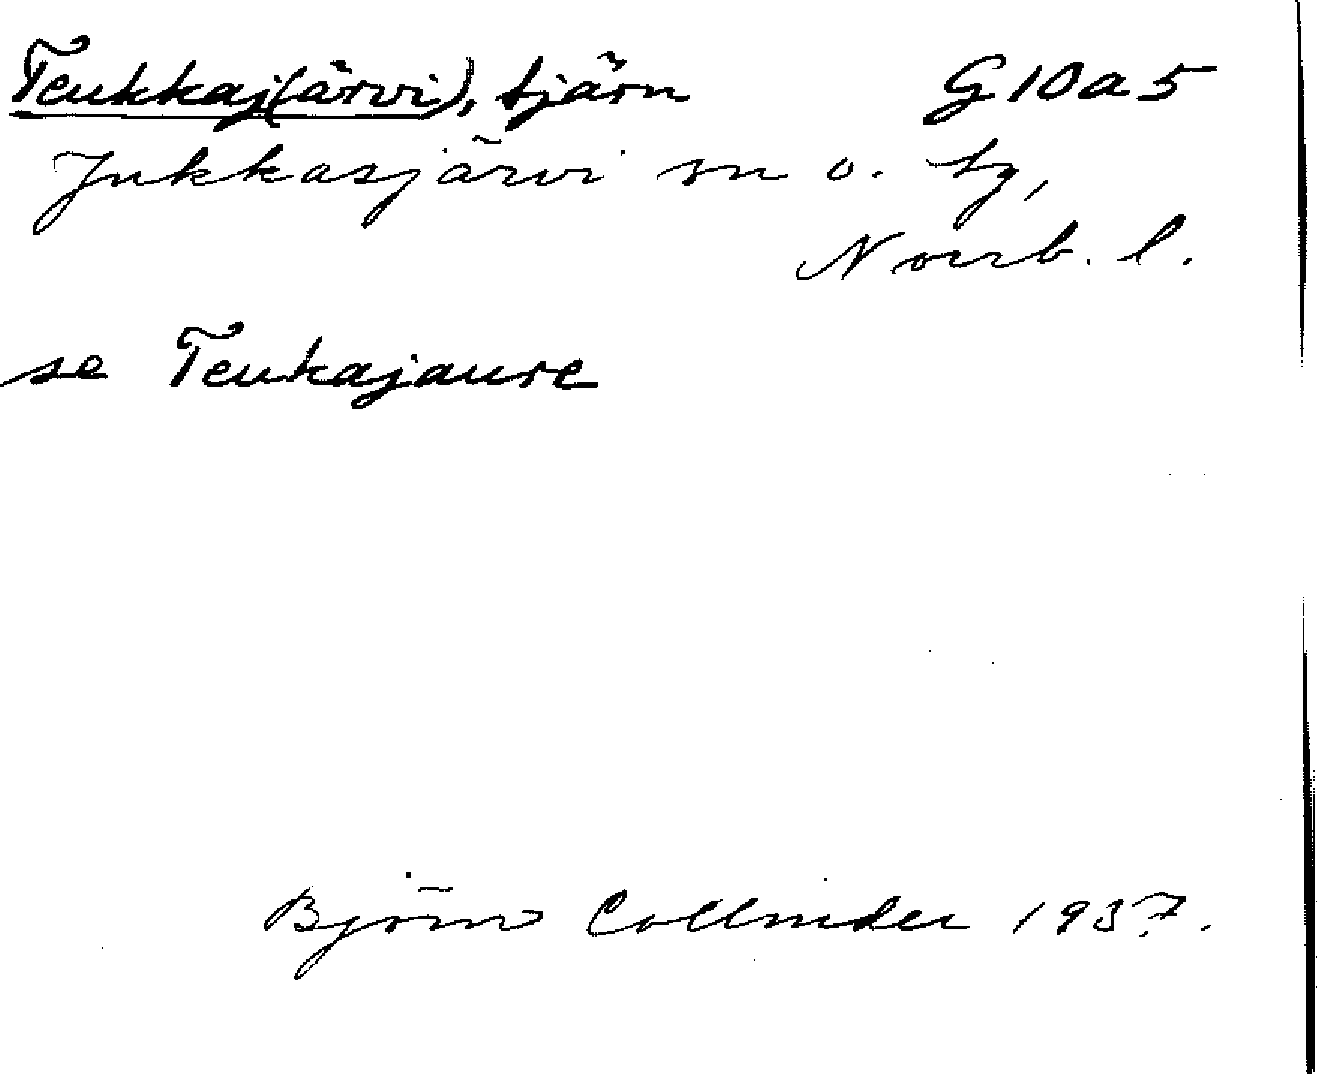 Teukkaj(ärvi), tjärn G10a5
Jukkasjärvi sn o. tg,
Norrb. l.
se Teukajaure
Björn Collinder 1937.